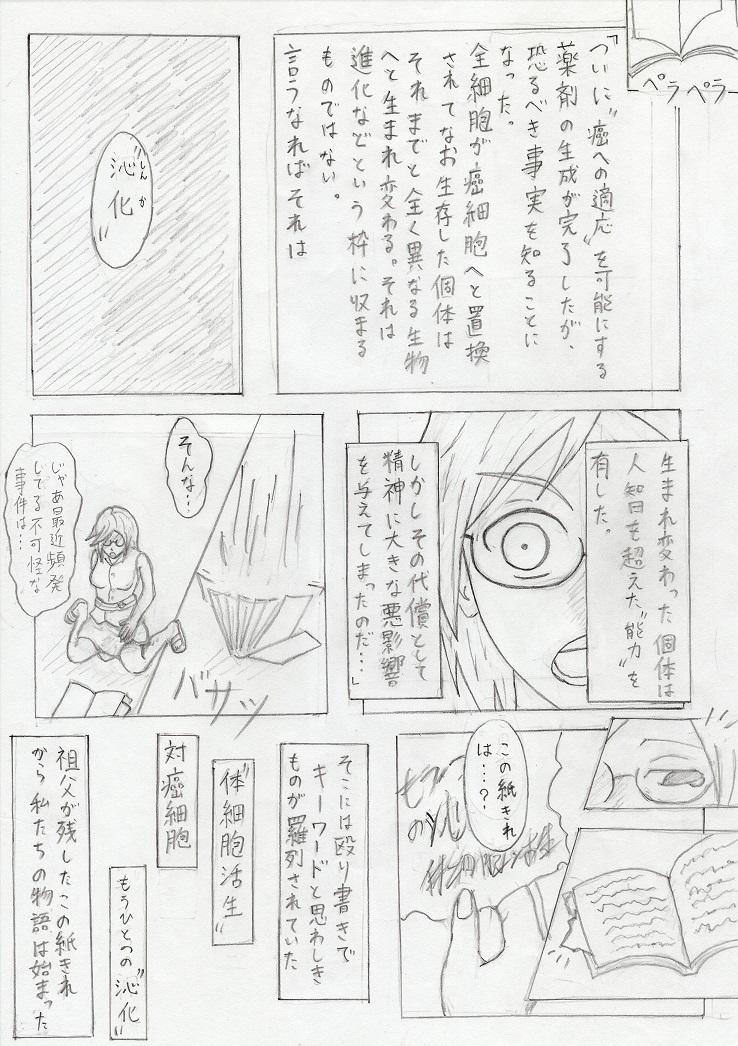 ペラペラ
『ついに〝癌への適応〟を可能にする
薬剤の生成が完了したが、
恐るべき事実を知ることに
なった。
全細胞が癌細胞へと置換
されてなお生存した個体は
それまでと全く異なる生物
へと生まれ変わる。それは
進化などという枠に収まる
ものではない。
言うなればそれは
〝沁化〟
しんか
生まれ変わった個体は
人知を超えた〝能力〟を
有した。
しかしその代償として
精神に大きな悪影響
を与えてしまったのだ…』
そんな…
じゃあ最近頻発
してる不可怪な
事件は…
バサッ
この紙きれ
は…？
そこには殴り書きで
キーワードと思わしき
ものが羅列されていた
〝体細胞活生〟
対癌細胞
もうひとつの〝沁化〟
祖父が残したこの紙きれ
から私たちの物語は始まった